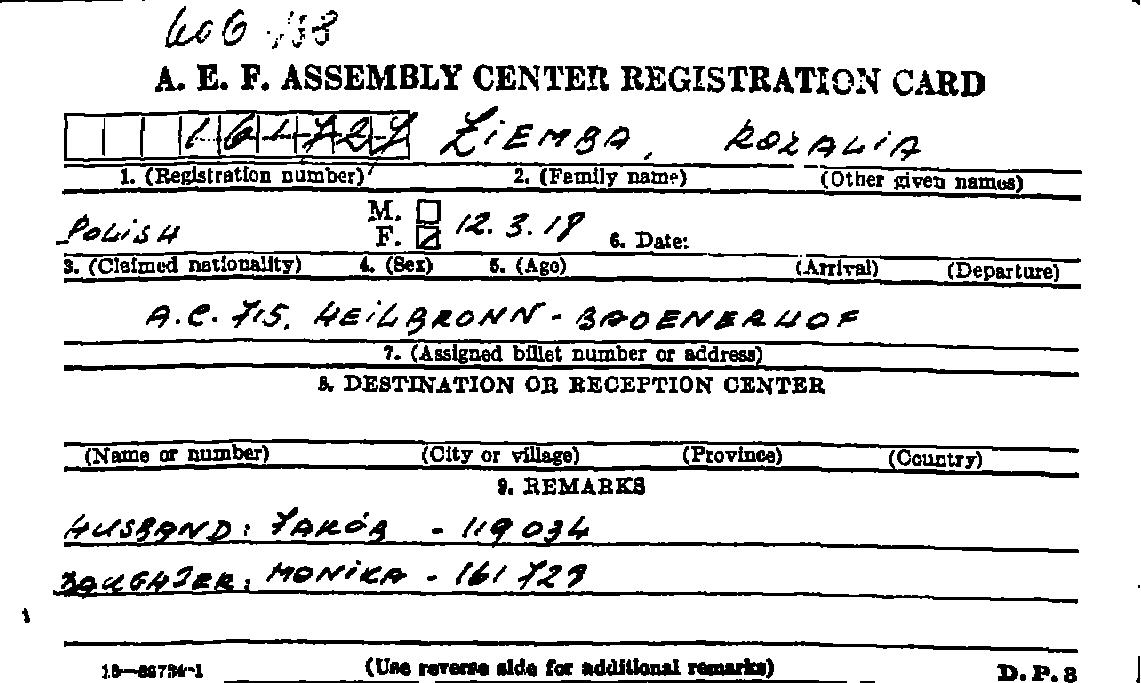 606 138
A. E. F. ASSEMBLY CENTER REGISTRATION CARD
161727 ZIEMBA, ROZALIA
1. (Registration number) 2. (Family name) (Other given names)
POLISH M. F. 12.3.19 6. Date:
3. (Claimed nationality) 4. (Sex) 5. (Age) (Arrival) (Departure)
A.C. 715, HEILBRONN - BADENERHOF
7. (Assigned billet number or address)
8. DESTINATION OR RECEPTION CENTER
(Name or number) (City or village) (Province) (Country)
9. REMARKS
HUSBAND: JAKÓB - 119034
DAUGHTER: MONIKA - 161729
16—39734-1 (Use reverse side for additional remarks) D. P. 3